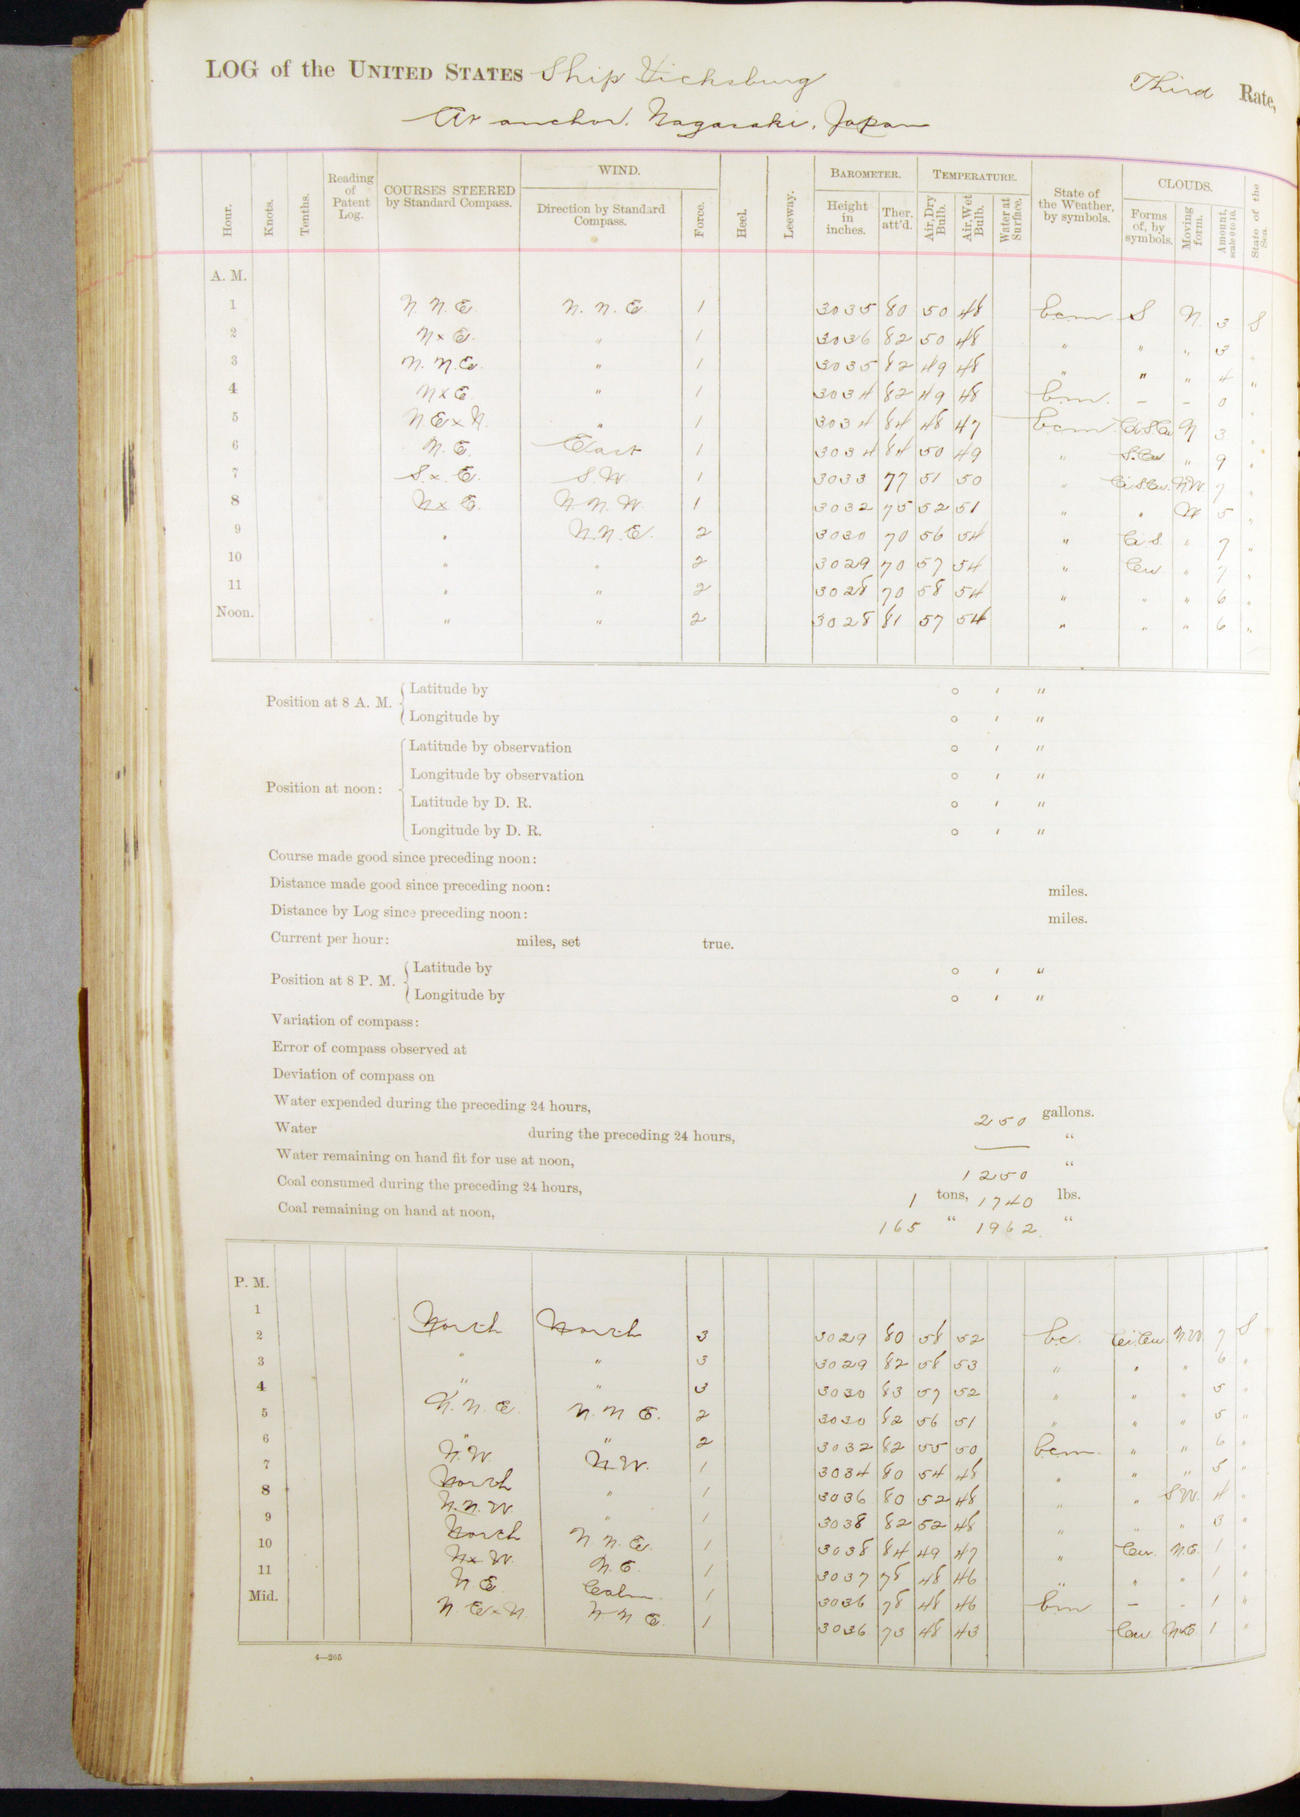 LOG of the UNITED STATES Ship Vicksburg Third Rate,
At anchor. Nagasaki, Japan
Hour. Knots. Tenths. Reading of Patent Log. COURSES STEERED by Standard Compass. WIND. Direction by Standard Compass. Force. Heel. Leeway. BAROMETER. Height in inches. Ther. att'd. TEMPERATURE. Air, Dry Bulb. Air, Wet Bulb. Water at Surface. State of the Weather, by symbols. CLOUDS. Forms of, by symbols. Moving form. Amount, scale 0 to 10. State of the Sea.
A. M.
1 N. N. E. N. N. E. 1 3035 80 50 48 bcm S N. 3 S
2 N x E. " 1 3036 82 50 48 " " " 3 "
3 N. N. E. " 1 3035 82 49 48 " " " 4 "
4 N x E. " 1 3034 82 49 48 bm. – – 0 "
5 N E x N. " 1 3034 84 48 47 bcm Ci S Cu N 3 "
6 N. E. East 1 3034 84 50 49 " S. Cu " 9 "
7 S. x. E. S. W. 1 3033 77 51 50 " Ci S Cu. NW 7 "
8 N x E. N. N. W. 1 3032 75 52 51 " " W 5 "
9 " N. N. E. 2 3030 70 56 54 " Ci S. " 7 "
10 " " 2 3029 70 57 54 " Cu " 7 "
11 " " 2 3028 70 58 54 " " " 6 "
Noon. " " 2 3028 81 57 54 " " " 6 "
Position at 8 A. M. Latitude by ° ′ ″
Longitude by ° ′ ″
Position at noon: Latitude by observation ° ′ ″
Longitude by observation ° ′ ″
Latitude by D. R. ° ′ ″
Longitude by D. R. ° ′ ″
Course made good since preceding noon:
Distance made good since preceding noon: miles.
Distance by Log since preceding noon: miles.
Current per hour: miles, set true.
Position at 8 P. M. Latitude by ° ′ ″
Longitude by ° ′ ″
Variation of compass:
Error of compass observed at
Deviation of compass on
Water expended during the preceding 24 hours, 250 gallons.
Water during the preceding 24 hours, — "
Water remaining on hand fit for use at noon, 1250 "
Coal consumed during the preceding 24 hours, 1 tons, 1740 lbs.
Coal remaining on hand at noon, 165 " 1962 "
P. M.
1 North North 3 3029 80 58 52 bc. Ci Cu. N.W. 7 S
2 " " 3 3029 82 58 53 " " " 6 "
3 " " 3 3030 83 57 52 " " " 5 "
4 N. N. E. N. N E. 2 3030 82 56 51 " " " 5 "
5 " " 2 3032 82 55 50 bcm. " " 6 "
6 N. W. N. W. 1 3034 80 54 48 " " " 5 "
7 North " 1 3036 80 52 48 " " S W. 4 "
8 N. N. W. " 1 3038 82 52 48 " " " 3 "
9 North N. N. E. 1 3038 84 49 47 " Cu. N. E. 1 "
10 N x W. N. E. 1 3037 78 48 46 " " " 1 "
11 N E. Calm 1 3036 78 48 46 bm – – 1 "
Mid. N. E x N. N N E. 1 3036 73 48 43 Cu. NxE 1 "
4—265